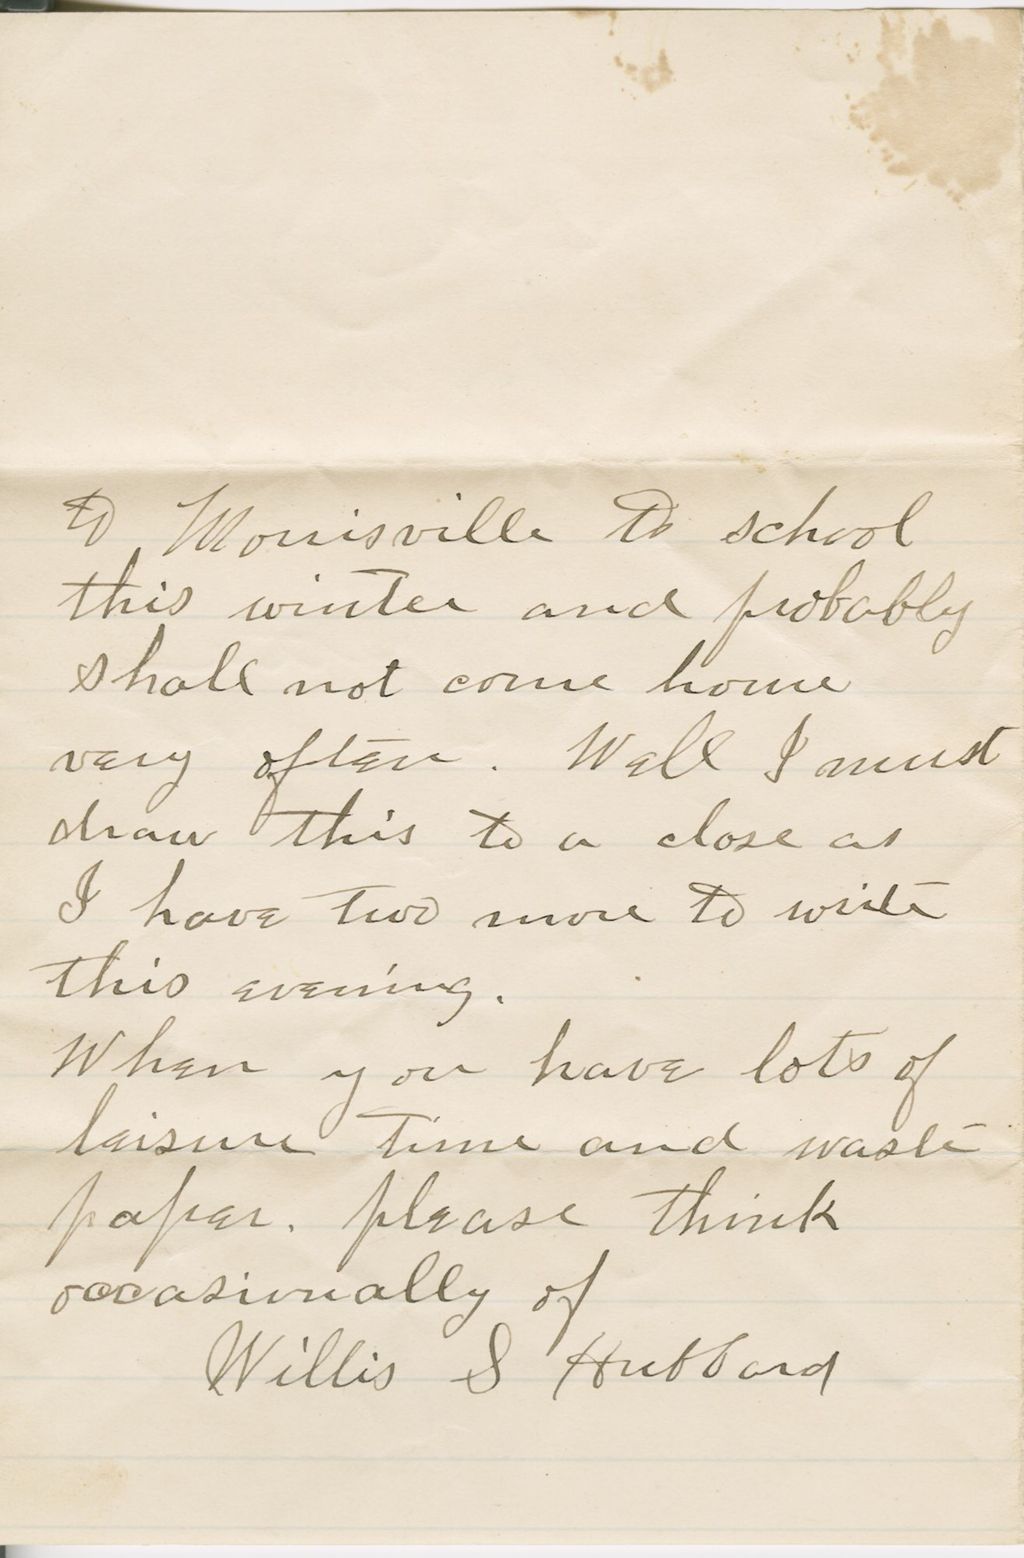 to Morrisville to school
this winter and probably
shall not come home
very often. Well I must
draw this to a close as
I have two more to write
this evening.
When you have lots of
leisure time and waste
paper. please think
occasionally of
Willis S Hubbard